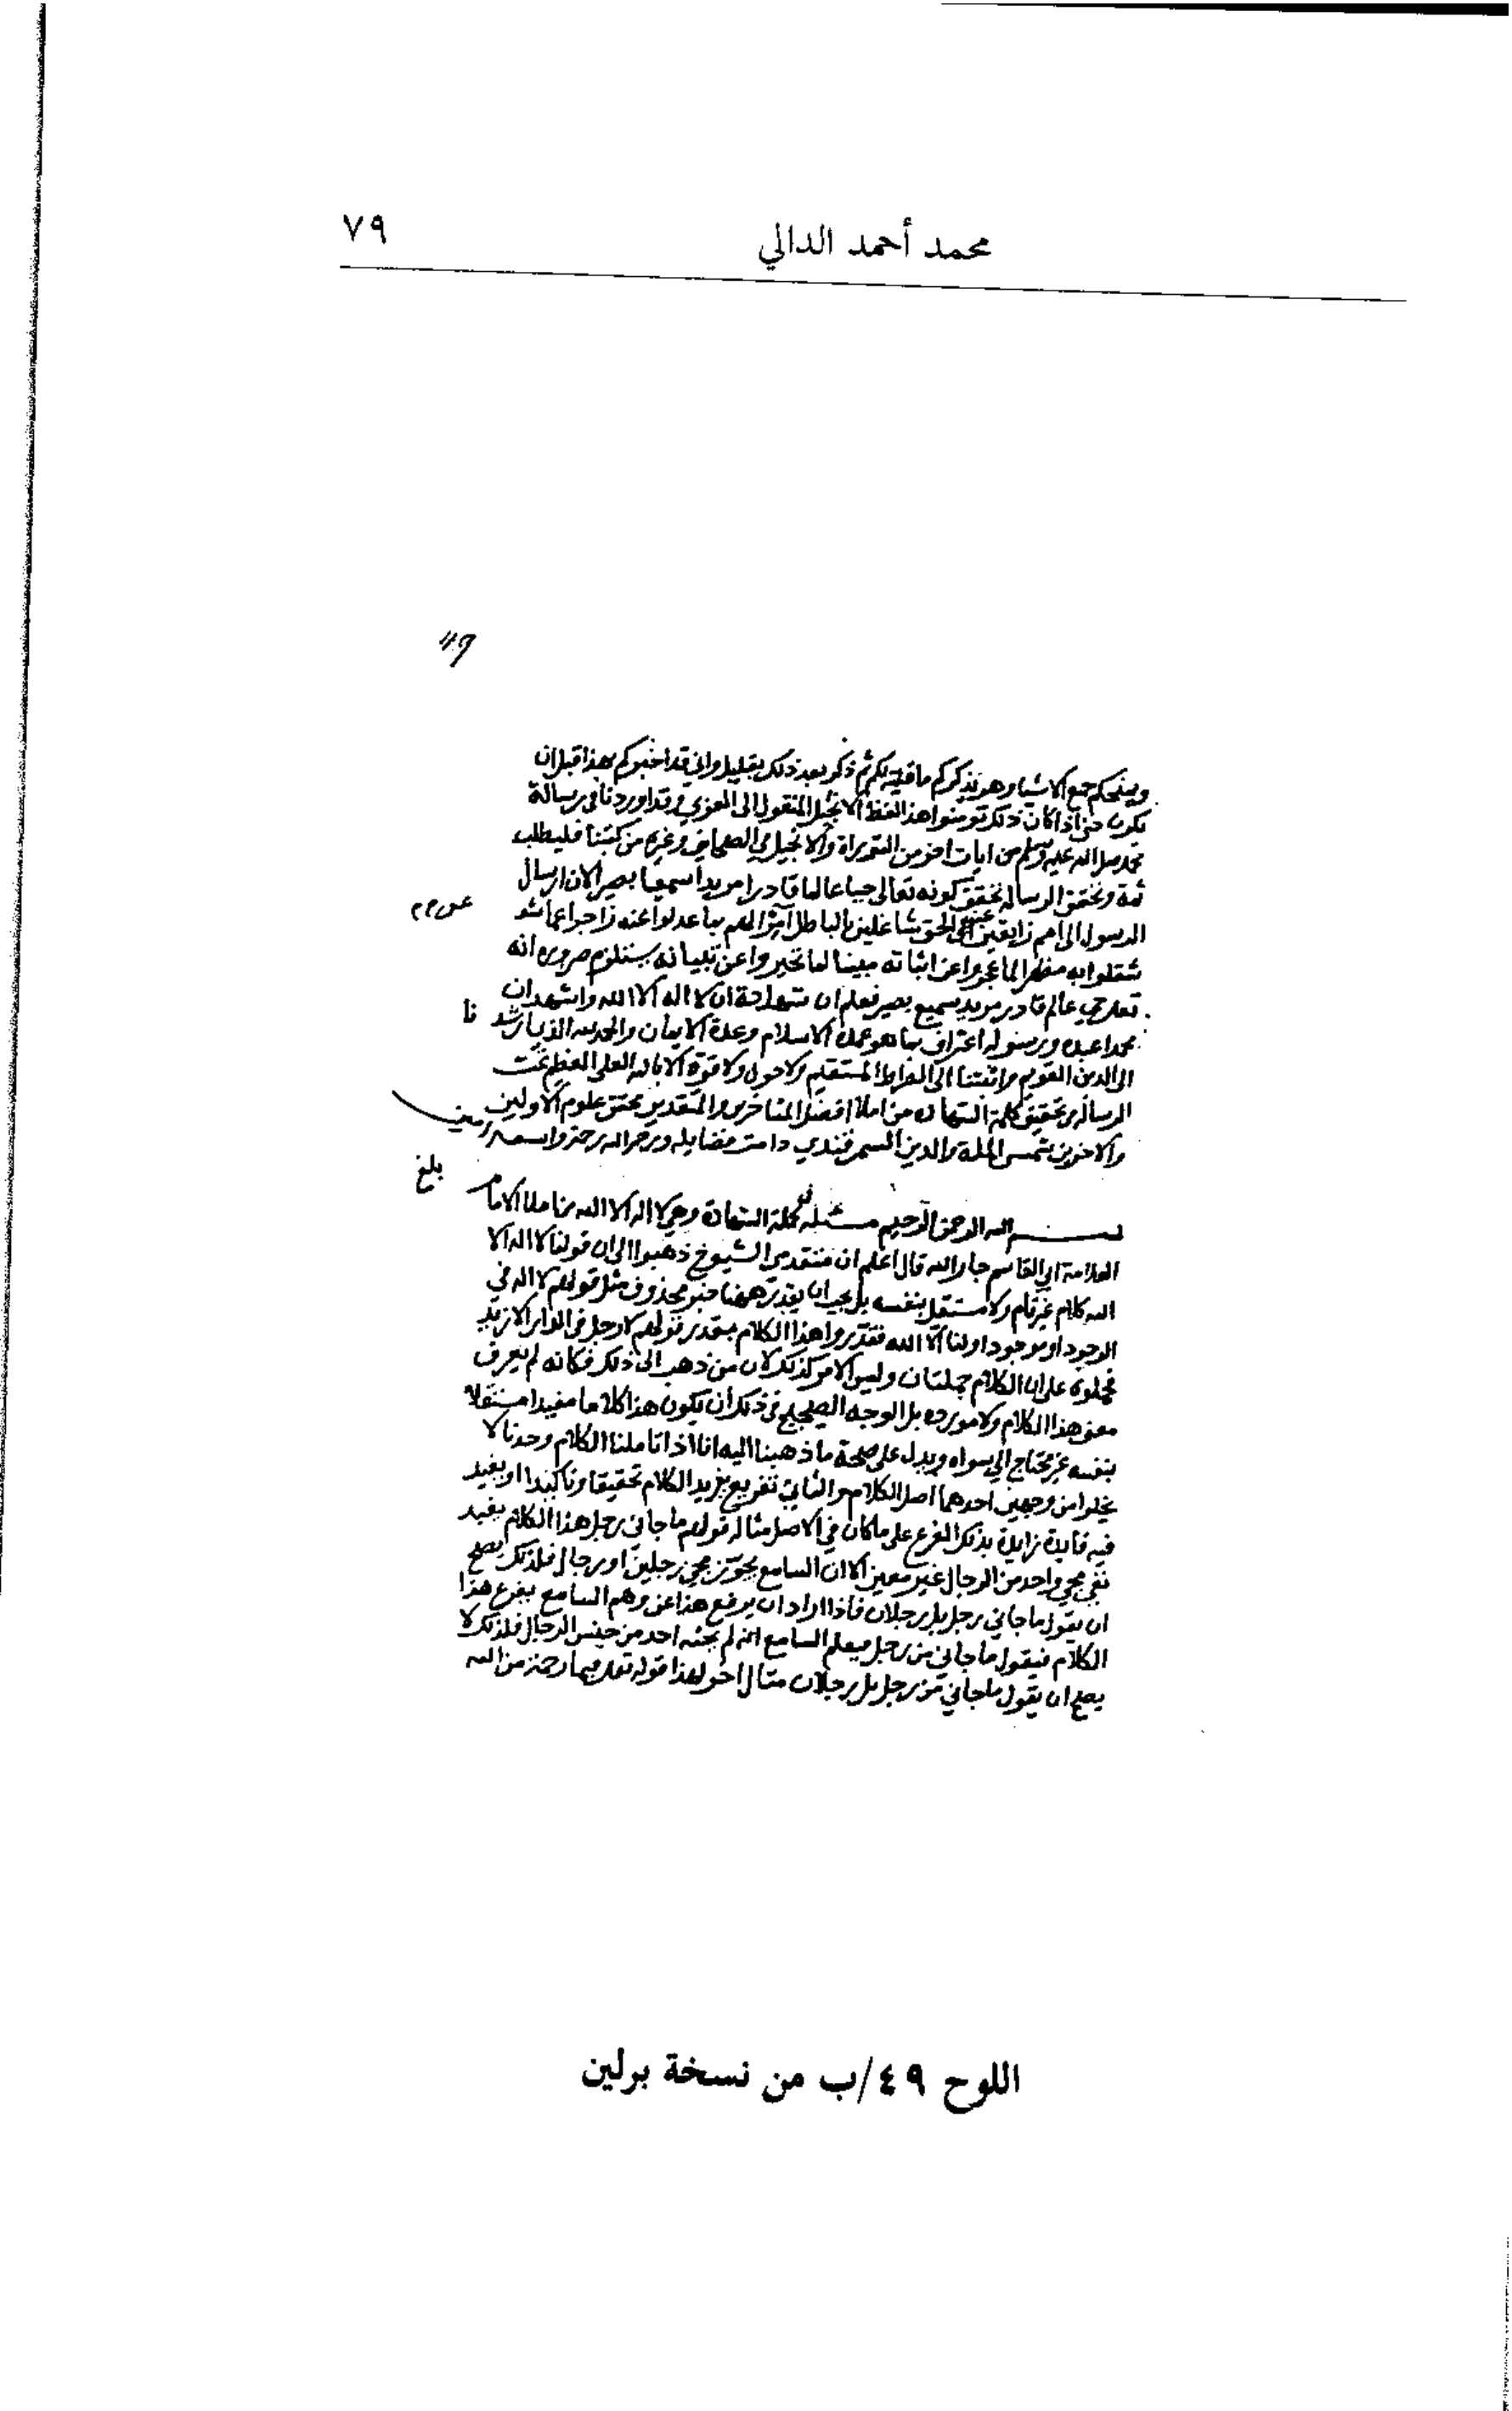 محمد أحمد الدالي
٧٩
٤٩
ويمنحكم جميع الاشيا وهو يذكركم ما قلته لكم ثم ذكر بعد ذلك بقليل واني قد اخبركم بهذا قبل ان
يكون حتى اذا كان ذلك تومنوا هذا لفظ الانجيل المنقول الى العربي وقد اوردنا في رسالة
محمد صلى الله عليه وسلم من ايات اخر من التوراة والانجيل في الصحايف وغيره من كتبنا فليطلب
ثمة وتحقق الرسالة تحقق كونه تعالى حيا عالما قادرا مريدا سميعا بصيرا لان ارسال
الرسول الى امم زايغين عن الحق شاغلين بالباطل آمرا لهم بما عدلوا عنه زاجرا عما
شغلوا به مظهرا لما عجزوا عن اثباته مبينا لما تحيروا عن تبيانه يستلزم ضرورة انه
تعالى حي عالم قادر مريد سميع بصير فعلم ان شهادة ان لا اله الا الله واشهد ان
محمدا عبده ورسوله اعتراف بما هو عمدة الاسلام وعدة الايمان والحمد لله الذي ارشدنا
الى الدين القويم الى الصراط المستقيم ولا حول ولا قوة الا بالله العلي العظيم تمت
الرسالة في تحقيق كلمة الشهادة من املا افضل المتاخرين والمتقدمين محقق علوم الاولين
والاخرين شمس الملة والدين السمرقندي دامت فضايله ورحم الله رحمة واسعة امين
بلغ
بسم الله الرحمن الرحيم مسئله في كلمة الشهادة وهي لا اله الا الله من املا الامام
العلامة ابي القاسم جار الله قال اعلم ان متقدمي الشيوخ ذهبوا الى ان قولنا لا اله الا
الله كلام غير تام ولا مستقل بنفسه بل يجب ان يقدر ههنا خبر محذوف مثل قولهم لا اله في
الوجود او موجود او لنا الا الله فقدروا هذا الكلام بتقدير قولهم لا رجل في الدار الا زيد
فحملوه على ان الكلام جملتان وليس الامر كذلك لان من ذهب الى ذلك فكانه لم يعرف
معنى هذا الكلام ولا مورده بل الوجه الصحيح في ذلك ان يكون هذا كلاما مفيدا مستقلا
بنفسه غير محتاج الى سواه ويدل على صحة ما ذهبنا اليه انا اذا تاملنا الكلام وجدناه لا
يخلوا من وجهين احدهما اصل الكلام والثاني تفريع يزيد الكلام تحقيقا وتاكيدا او يفيد
فيه فايدة زايدة بذلك الفرع على ما كان في الاصل مثاله قولهم ما جاني رجل هذا الكلام يفيد
نفي مجي واحد من الرجال غير معين الا ان السامع يجوز مجي رجلين او رجال فلذلك يصح
ان يقول ما جاني رجل بل رجلان فاذا اراد ان يرفع هذا عن وهم السامع يفرع هذا
الكلام فيقول ما جاني من رجل فيعلم السامع انه لم يجئه احد من جنس الرجال فلذلك لا
يصح ان يقول ما جاني من رجل بل رجلان مثال اخر لهذا قوله تعالى فبما رحمة من الله
اللوح ٤٩/ب من نسخة برلين